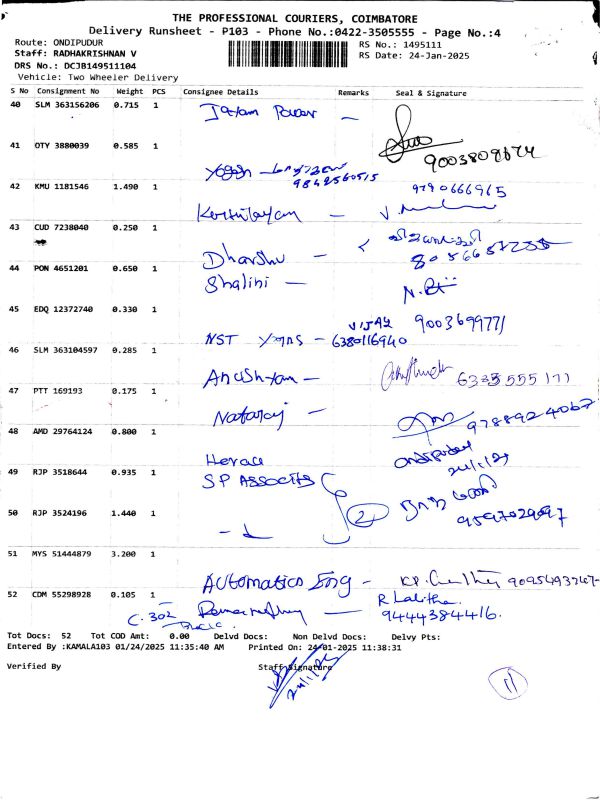 THE PROFESSIONAL COURIERS, COIMBATORE
Delivery Runsheet - P103 - Phone No.:0422-3505555 - Page No.:4
Route: ONDIPUDUR
Staff: RADHAKRISHNAN V
DRS No.: DCJB149511104
Vehicle: Two Wheeler Delivery
RS No.: 1495111
RS Date: 24-Jan-2025
S No Consignment No Weight PCS Consignee Details Remarks Seal & Signature
40 SLM 363156206 0.715 1
41 OTY 3880039 0.585 1
9003809674
Yogesh
9842560515
42 KMU 1181546 1.490 1
9790666965
43 CUD 7238040 0.250 1
Dharshu -
44 PON 4651201 0.650 1
Shalini -
45 EDQ 12372740 0.330 1
NST YARNS - VIJAY 6380116940
9003699771
46 SLM 363104597 0.285 1
47 PTT 169193 0.175 1
6335 555 171
Nataraj -
48 AMD 29764124 0.800 1
9788924067
49 RJP 3518644 0.935 1
SP ASSOCITS
50 RJP 3524196 1.440 1
2
9597029097
51 MYS 51444879 3.200 1
AUTOMATICS Eng -
52 CDM 55298928 0.105 1
R Lalitha.
C. 302
9444384416.
Tot Docs: 52 Tot COD Amt: 0.00 Delvd Docs: Non Delvd Docs: Delvy Pts:
Entered By :KAMALA103 01/24/2025 11:35:40 AM Printed On: 24-01-2025 11:38:31
Verified By Staff Signature
24/1/25
11